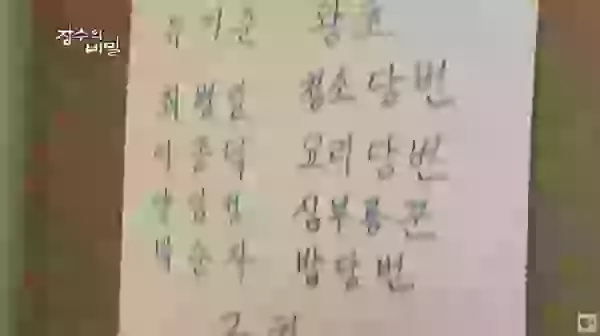 장수의
비밀
유기준 왕초
최병일 청소당번
이종덕 요리당번
심부름꾼
박순자 밥당번